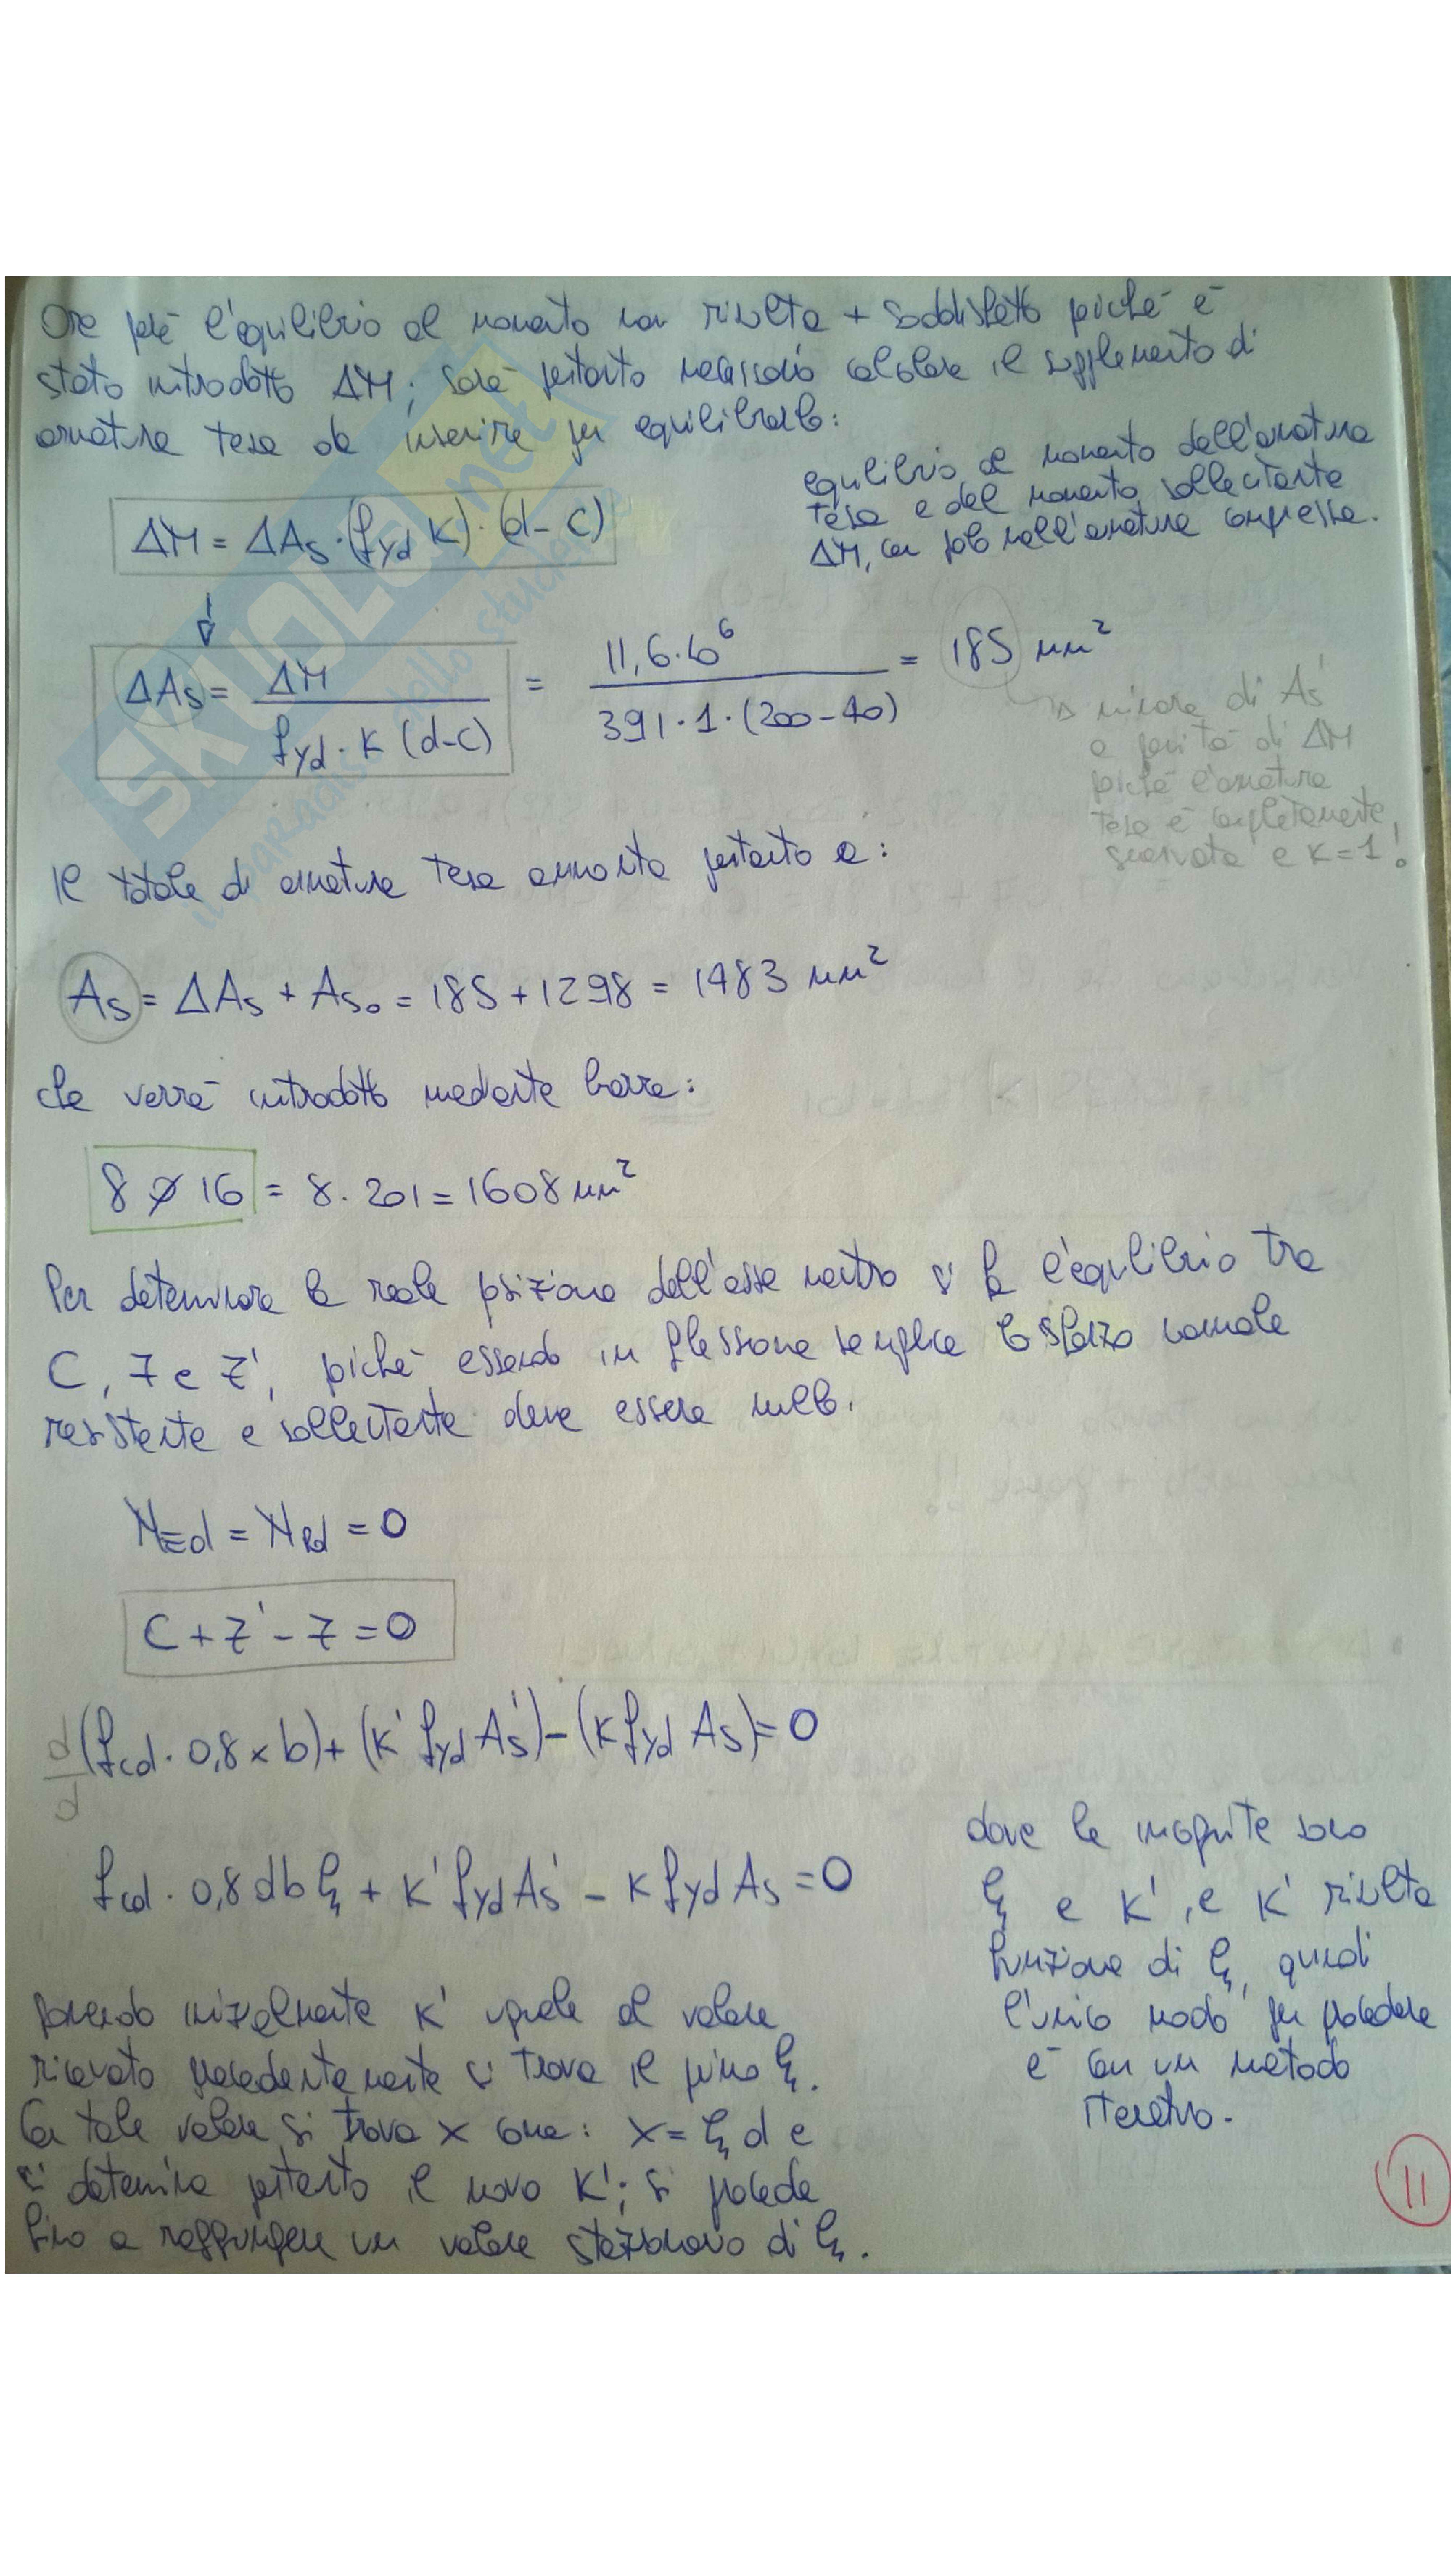 Ora però l'equilibrio al momento non risulta + soddisfatto poiché è
stato introdotto ΔM; sarà pertanto necessario calcolare il supplemento di
armatura tesa da inserire per equilibrarlo:
equilibrio al momento dell'armatura
tesa e del momento sollecitante
ΔM, con polo nell'armatura compressa.
ΔM = ΔAs · (fyd K) · (d - c)
ΔAs = ΔM / (fyd · K (d-c)) = 11,6·10⁶ / (391·1·(200-40)) = 185 mm²
minore di As'
a parità di ΔM
poiché l'armatura
tesa è completamente
snervata e K=1!
Il totale di armatura tesa ammonta pertanto a:
As = ΔAs + Aso = 185 + 1298 = 1483 mm²
che verrà introdotto mediante barre:
8 ϕ 16 = 8 · 201 = 1608 mm²
Per determinare la reale posizione dell'asse neutro si fa l'equilibrio tra
C, Z e Z', poiché essendo in flessione semplice lo sforzo normale
resistente e sollecitante deve essere nullo.
NEd = NRd = 0
C + Z' - Z = 0
d/d (fcd · 0,8 x b) + (K' fyd As') - (K fyd As) = 0
fcd · 0,8 d b ξ + K' fyd As' - K fyd As = 0
dove le incognite sono
ξ e K', e K' risulta
funzione di ξ, quindi
l'unico modo per procedere
è con un metodo
iterativo.
ponendo inizialmente K' uguale al valore
ricavato precedentemente si trova il primo ξ.
Con tale valore si trova x come: x = ξ d e
si determina pertanto il nuovo K'; si procede
fino a raggiungere un valore stazionario di ξ.
11
SKUOLA.net
il paradiso dello studente